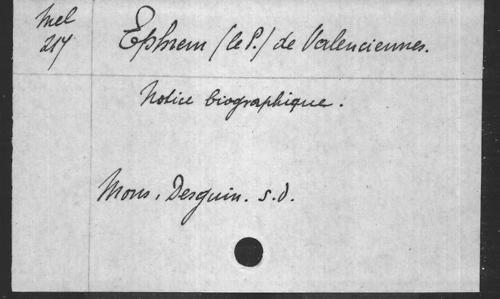 Mel
217
Ephrem (le P.) de Valenciennes.
Notice biographique.
Mons, Desguin. s.d.